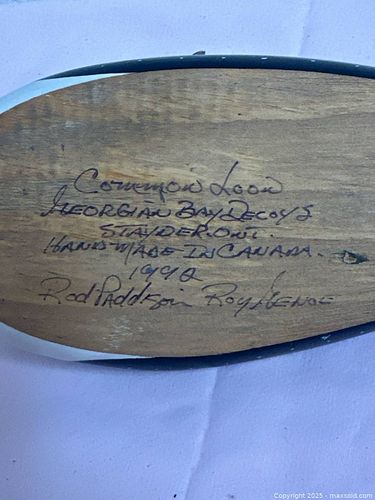 Common Loon
GEORGIAN BAY DECOYS
STAYNER ONT.
HANDMADE IN CANADA.
Rod Paddison Roy
Copyright 2025 - maxsold.com